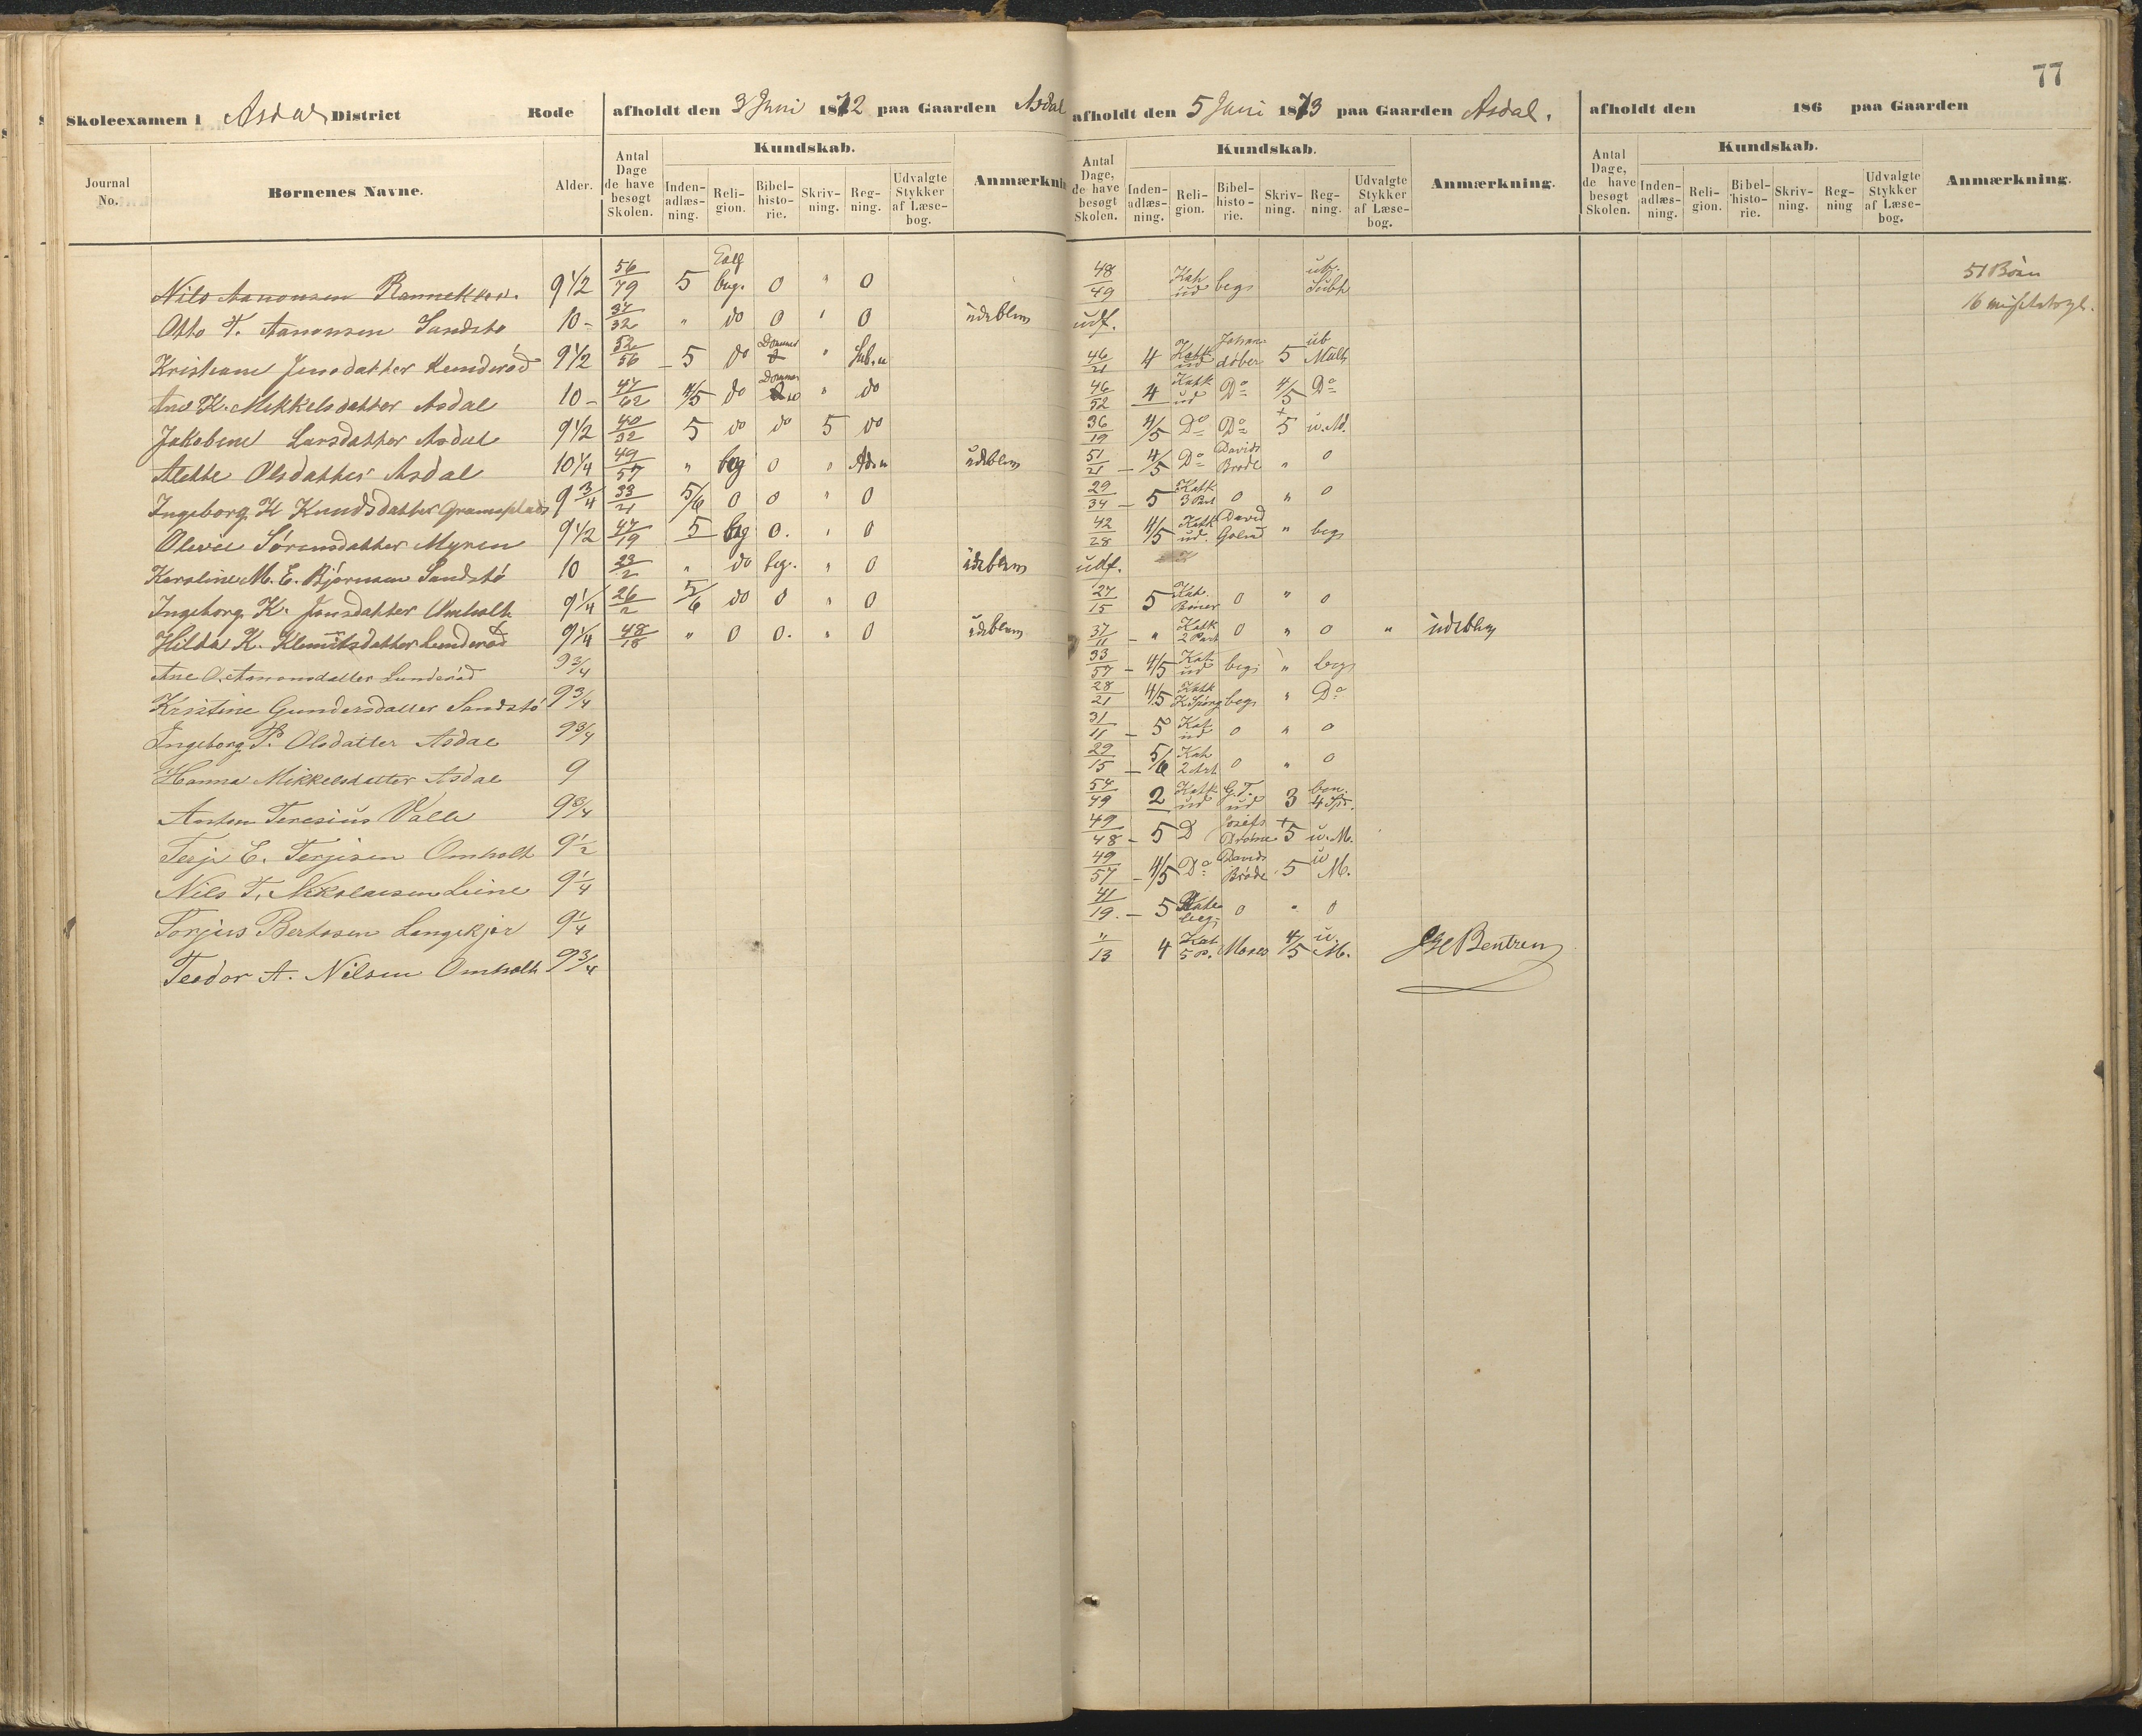 77
Skoleexamen i Asdal District Rode afholdt den 3 Juni 1872 paa Gaarden Asdal afholdt den 5 Juni 1873 paa Gaarden Asdal. afholdt den 186 paa Gaarden
Journal No. Børnenes Navne. Alder. Antal Dage de have besøgt Skolen. Kundskab. Inden-adlæs-ning. Reli-gion. Bibel-histo-rie. Skriv-ning. Reg-ning. Udvalgte Stykker af Læse-bog. Anmærkni
Antal Dage, de have besøgt Skolen. Kundskab. Inden-adlæs-ning. Reli-gion. Bibel-histo-rie. Skriv-ning. Reg-ning. Udvalgte Stykker af Læse-bog. Anmærkning.
Antal Dage, de have besøgt Skolen. Kundskab. Inden-adlæs-ning. Reli-gion. Bibel-histo-rie. Skriv-ning. Reg-ning Udvalgte Stykker af Læse-bog. Anmærkning.
Nils Aanonsen 9 1/2 56/79 5 beg. 0 " 0 48/49 Kat ud begs 51 Børn
Otto T. Aanonsen Sandstø 10 - 37/32 " do 0 " 0 udeblev udf. 16
Kristiane Jensdatter Lunderød 9 1/2 52/56 5 do " Sub. u 46/21 4 Katk ud Johan døber 5 ub Mult
Ane K. Mikkelsdatter Asdal 10 - 47/62 4/5 do " do 46/52 4 Katk ud Do 4/5 Do
Jakobine Larsdatter Asdal 9 1/2 40/32 5 do do 5 do 36/19 4/5 Do Do 5 u. M.
Alette Olsdatter Asdal 10 1/4 49/57 " beg 0 " Ad. u udeblev 51/21 4/5 Do Davids Brøde " 0
Ingeborg K Knudsdatter 9 3/4 33/21 5/6 0 0 " 0 29/34 5 Katk 3 Part 0 " 0
Olivie Sørensdatter Myren 9 1/2 47/19 5 beg 0. " 0 42/28 4/5 Katk ud. David " begs
Karoline M. E. Bjørnsen Sandstø 10 23/2 " do beg. " 0 udeblev udf.
Ingeborg K. Jensdatter Omholt 9 1/4 26/2 5/6 do 0 " 0 27/15 5 Kat. 0 " 0
Hilda K. Klemitsdatter Lunderød 9 1/4 48/18 " 0 0. " 0 udeblev 37/11 " Katk 2 Part 0 " 0 " udeblev
Ane O. Aanonsdatter Lunderød 9 3/4 33/57 4/5 Kat ud begs " begs
Kristine Gundersdatter Sandstø 9 3/4 28/21 4/5 Katk begs " Do
Ingeborg T. Olsdatter Asdal 9 3/4 31/11 5 Kat ud 0 " 0
Hanna Mikkelsdatter Asdal 9 29/15 5/6 Kat 2 Art 0 " 0
Anton Teresius Valle 9 3/4 57/49 2 Katk ud G. T. ud 3 ben. 4 Sp.
Terje E. Terjisen Omholt 9 1/2 49/48 5 D Josefs Drøme 5 u. M.
Nils T. Nikolaisen Liene 9 1/4 49/57 4/5 Do Davids Brøde 5 u M.
Torjus Bertosen Langekjer 9 1/4 41/19 5 Kate begs 0 " 0
Teodor A. Nilsen Omholt 9 3/4 "/13 4 Kat 5 P. Moses 4/5 u M. Bentzen